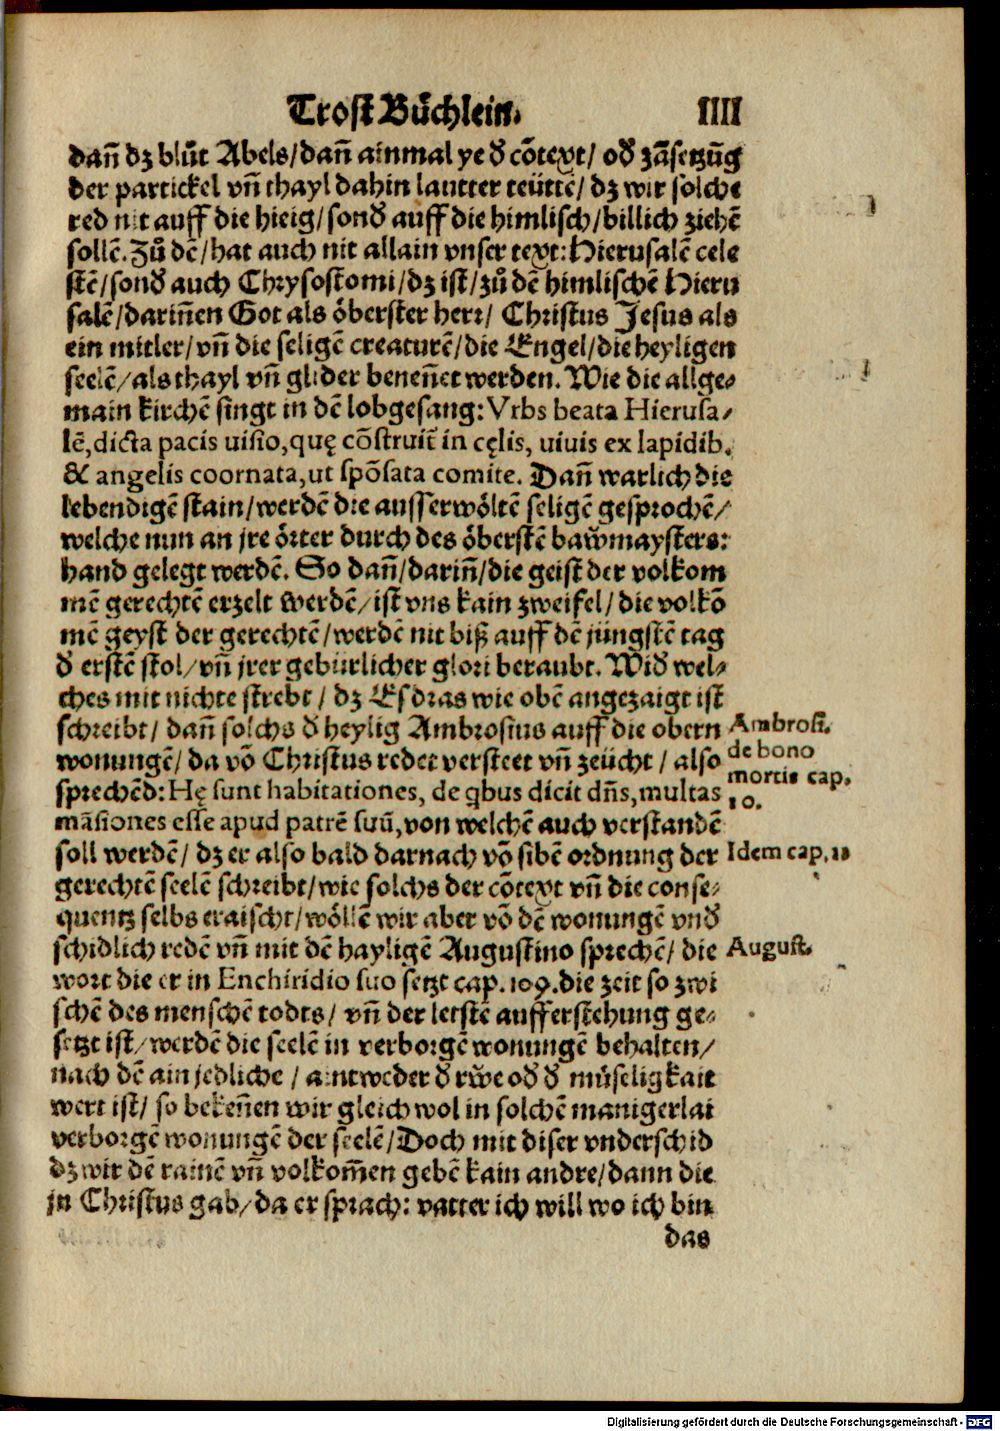 Trost Bůchlein. IIII
dañ dz blůt Abels/dañ ainmal ye d᷎ cõtext/ od᷎ zãsetzũg
der partickel vñ thayl dahin lautter teüttẽ/ dz wir solche
red nit auff die hieig/sond᷎ auff die himlisch/billich ziehẽ
sollẽ. Zů dẽ/hat auch nit allain vnser text: Hierusalẽ cele
stẽ/sond᷎ auch Chrysostomi/dz ist/zů dẽ himlischẽ Hieru
salẽ/dariñen Got als öberster herr/ Christus Jesus als
ein mitler/vñ die seligẽ creaturẽ/die Engel/die heyligen
seelẽ/als thayl vñ glider beneñet werden. Wie die allge⸗
main kirchẽ singt in dẽ lobgesang: Vrbs beata Hierusa⸗
lẽ, dicta pacis uisio, quę cõstruit̃ in cęlis, uiuis ex lapidib.
& angelis coornata, ut spõsata comite. Dañ warlich die
lebendigẽ stain/werdẽ die ausserwöltẽ seligẽ gesprochẽ/
welche nun an jre örter durch des öberstẽ baẘmaysters:
hand gelegt werdẽ. So dañ/dariñ/die geist der volkom
mẽ gerechtẽ erzelt werdẽ/ist vns kain zweifel/die volkõ
mẽ geyst der gerechtẽ/werdẽ nit biß auff dẽ jüngstẽ tag
d᷎ erstẽ stol/vñ jrer gebürlicher glori beraubt. Wid᷎ wel⸗
ches mit nichte strebt/ dz Esdras wie obẽ angezaigt ist
schreibt/ dañ solchs d᷎ heylig Ambrosius auff die obern
wonungẽ/ da võ Christus redet versteet vñ zeücht/ also
sprechẽd: Hę sunt habitationes, de qbus dicit dñs, multas
mãsiones esse apud patrẽ suũ, von welchẽ auch verstandẽ
soll werdẽ/ dz er also bald darnach võ sibẽ ordnung der
gerechtẽ seelẽ schreibt/wie solchs der cõtext vñ die conse⸗
quentz selbs eraischt/wöllẽ wir aber võ dẽ wonungẽ vnd᷎
schidlich redẽ vñ mit dẽ hayligẽ Augustino sprechẽ/ die
wort die er in Enchiridio suo setzt cap. 109. die zeit so zwi
schẽ des menschẽ todts/ vñ der letstẽ aufferstehung ge⸗
setzt ist/werdẽ die seelẽ in verborgẽ wonungẽ behalten/
nach dẽ ain jedliche/ aintweder d᷎ rẘe od᷎ d᷎ müseligkait
wert ist/ so bekeñen wir gleich wol in solchẽ manigerlai
verborgẽ wonungẽ der seelẽ/Doch mit diser vnderschid
dz wir dẽ rainẽ vñ volkom̃en gebẽ kain andre/dann die
jn Christus gab/da er sprach: vatter ich will wo ich bin
das
Ambrosi.
de bono
mortis cap.
10.
Idem cap. 11
August.
Digitalisierung gefördert durch die Deutsche Forschungsgemeinschaft - DFG